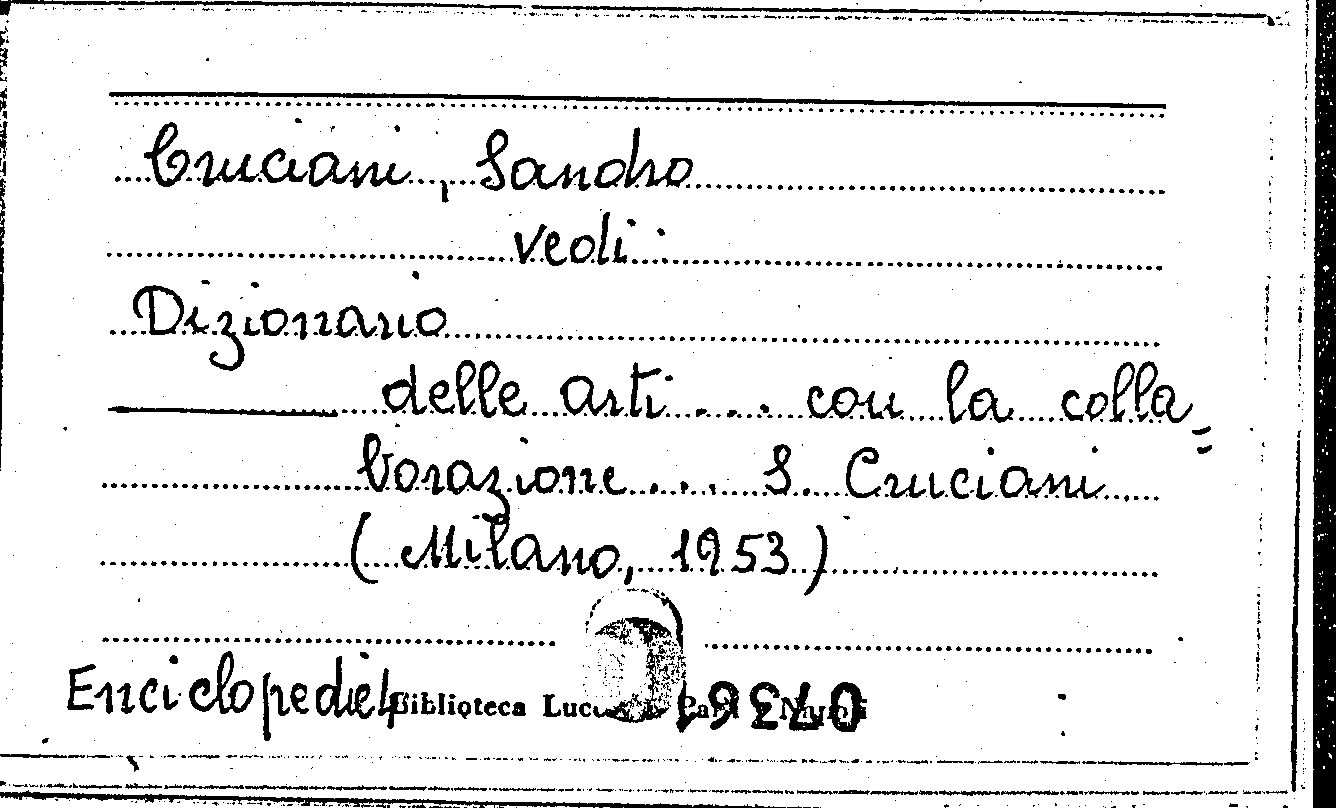 Cruciani, Sandro
vedi:
Dizionario
delle arti ... con la colla=
borazione ... S. Cruciani
(Milano, 1953)
Enciclopedie Biblioteca